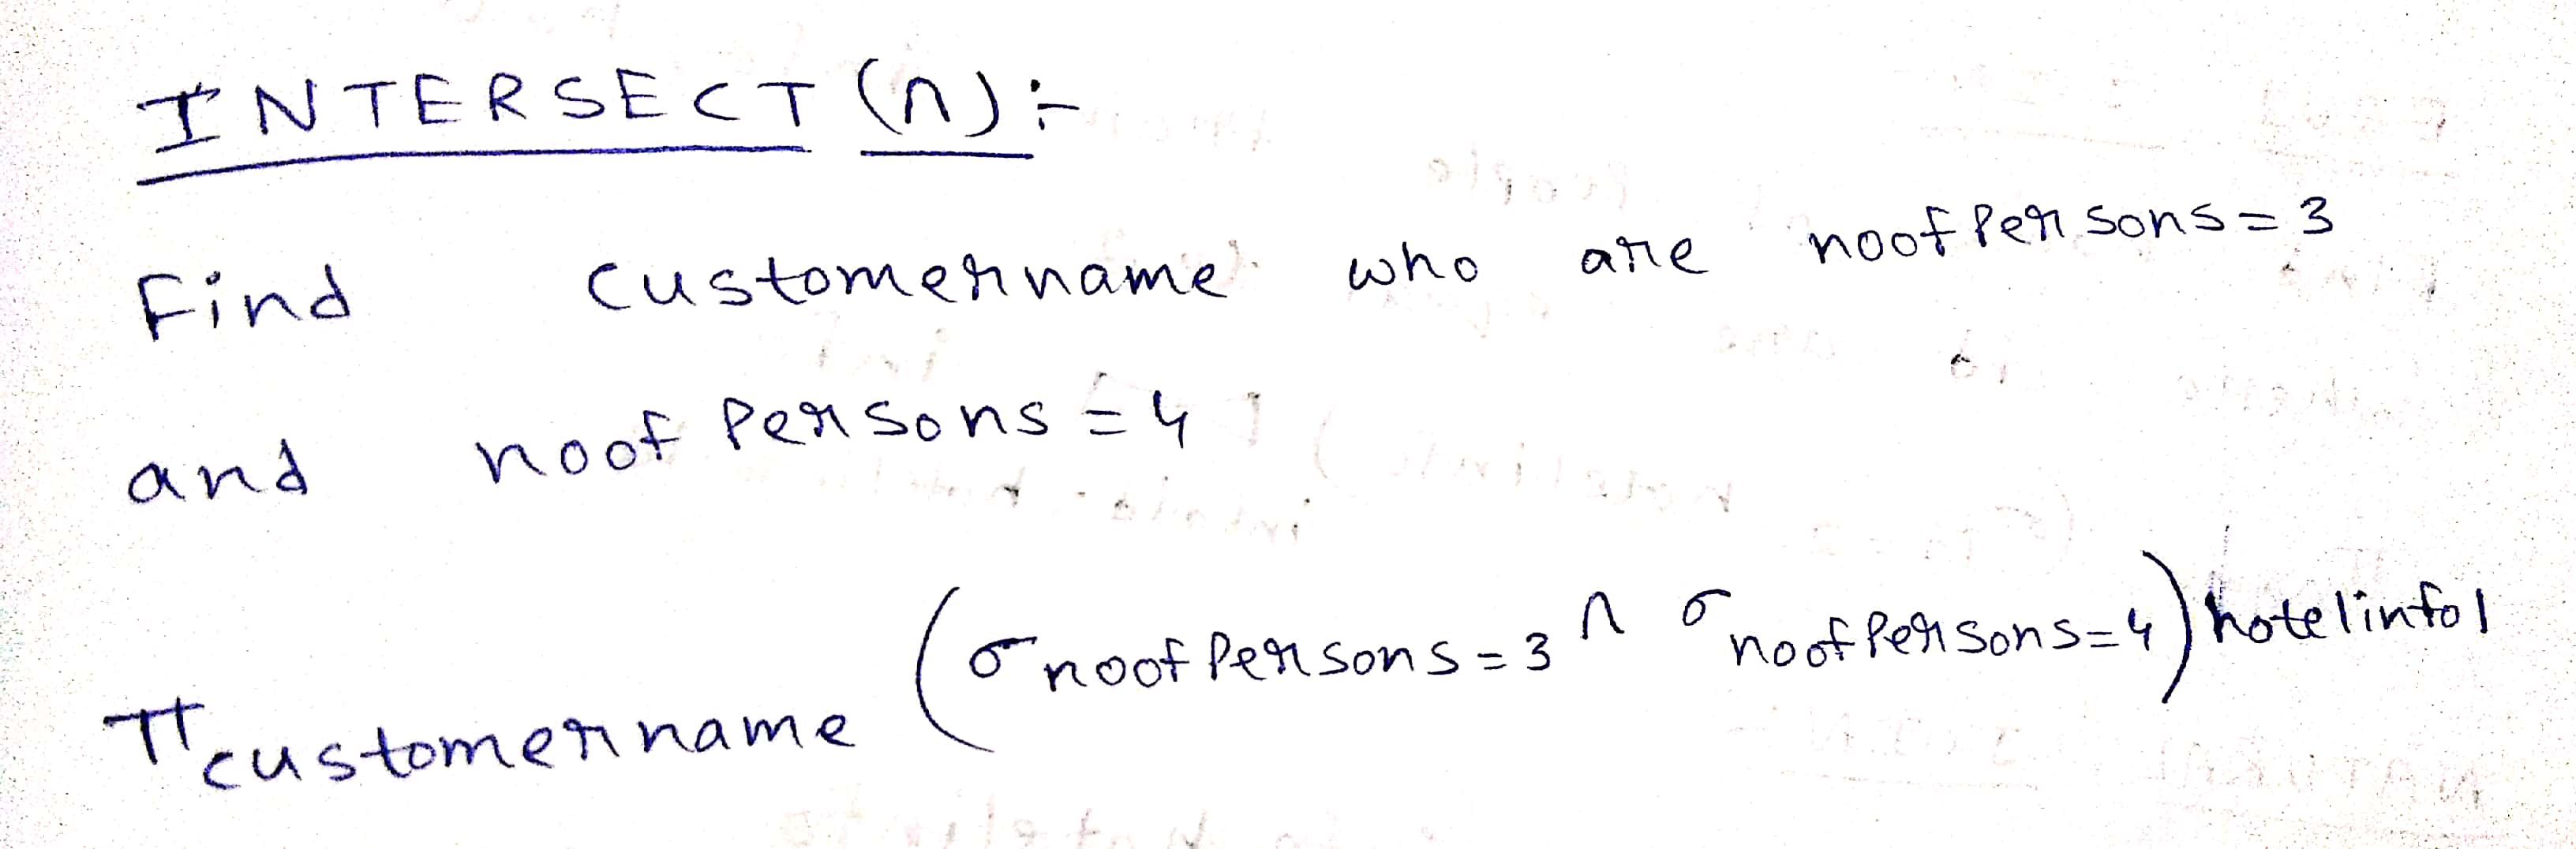 INTERSECT (∩):-
Find customername who are noofPersons=3
and noofPersons=4
π customername (σ noofPersons=3 ∩ σ noofPersons=4) hotelinfo1